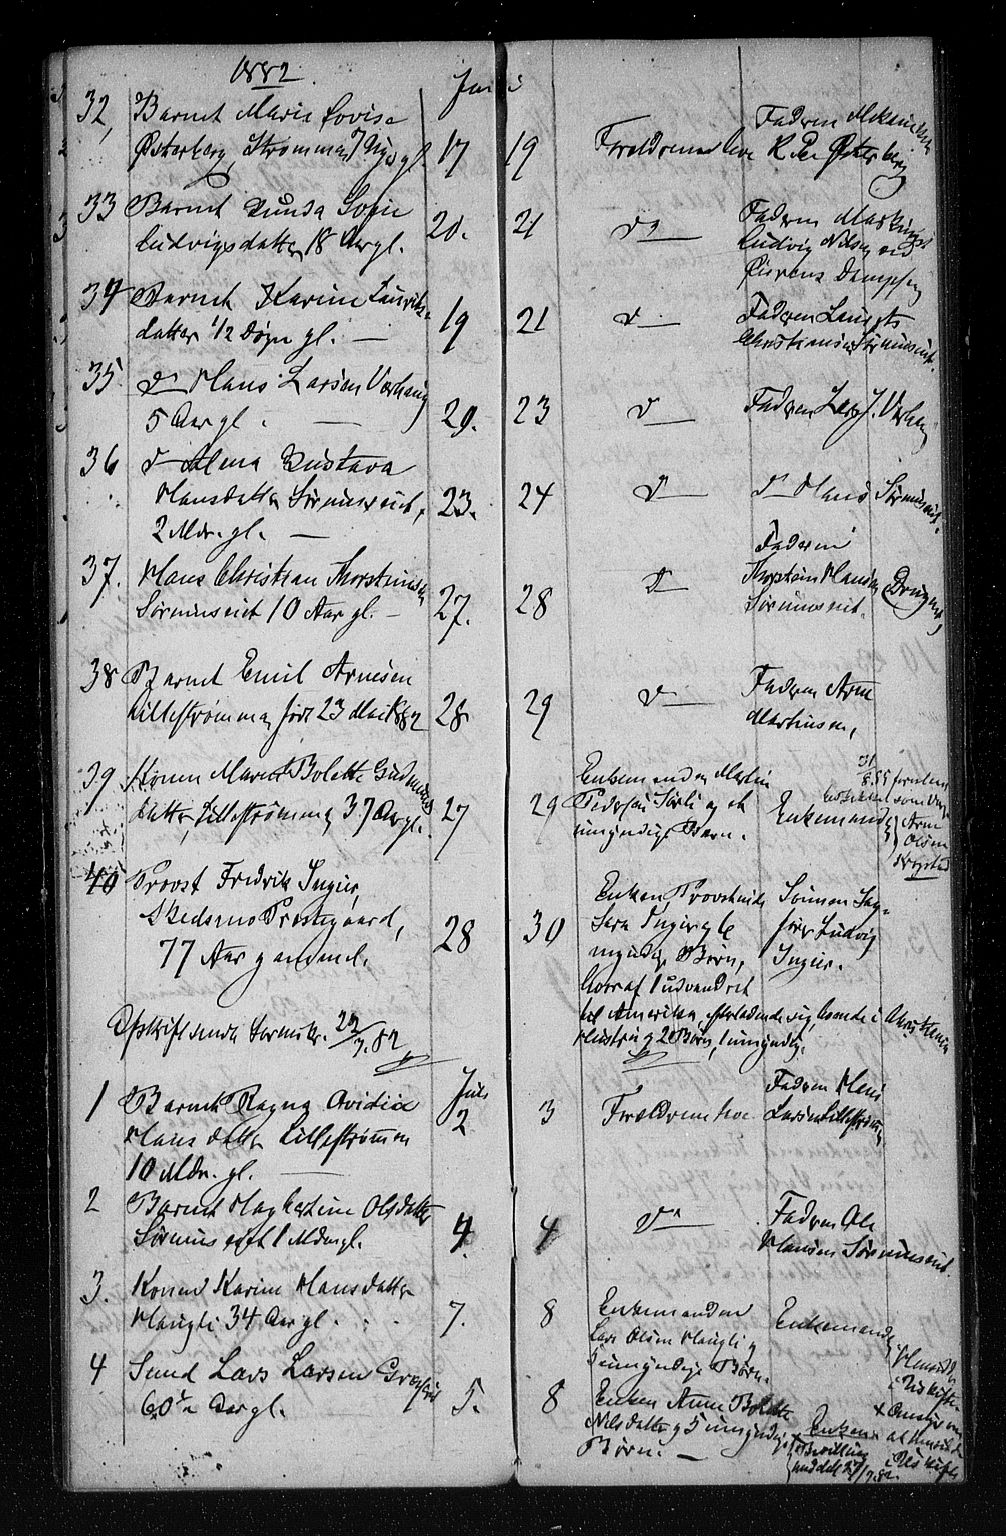 1882.
Juni
32, Barnet Marie Lovise
Østerberg, Strømmen, 7 Ugs gl. 17 19 Forældrene leve Faderen Mekanikus
R. Per Østerberg
33 Barnet Gunda Sofie
Ludvigsdatter 18 Aar gl. 20. 21 do Faderen Maskinist
Ludvig Nilsen ved
Øierens Dampsag
34 Barnet Karine Lauritz-
datter 1/2 Døgn gl. — 19 21 do Faderen Lauritz
Christiansen Sørumsneset.
35 do Hans Larsen Varhaug
5 Aar gl. — 20. 23 do Faderen Lars J. Varhaug
36 do Alma Gustava
Hansdatter Sørumsneset, 23. 24 do do Hans Sørumsneset.
2 Mdr. gl. —
37. Hans Christian Thorsteinsen
Sørumsneset 10 Aar gl. — 27. 28 do Faderen
Thorstein Hansen
Sørumsneset.
38 Barnet Emil Arnesen
Lillestrømmen født 23 Mai 1882 28 29 do Faderen Arne
Martinsen,
39 Konen Maren Bolette Gudmunds
datter, Lillestrømmen 37 Aar gl. 27 29 Enkemanden Martin
Pedersen Sørli og et
umyndigt Barn. Enkemanden
Arne
Olsen
40 Provst Fredrik Ingier,
Skedsmo Præstegaard,
77 Aar gammel. 28 30 Enken, Provstinde
Sara Ingier og 6
myndige Børn,
hvoraf 1 udvandret
til Amerika, efterladende sig, boende i Christiania
Hustru og 2 Børn, umyndig. Sønnen Sag-
fører Ludvig
Ingier.
Afskrift sendt Sorenskr. 22/7.82
Juli
1 Barnet Ragna Ovidia
Hansdatter Lillestrømmen
10 Mdr. gl. — 2 3 Forældrene leve Faderen Hans
Larsen Lillestrømmen
2 Barnet Hagbertine Olsdatter
Sørumsneset 1 Mdr gl. 4. 4 do Faderen Ole
Hansen Sørumsneset.
3. Konen Karine Hansdatter
Haugli 34 Aar gl. 7. 8 Enkemanden
Lars Olsen Haugli og
5 umyndige Børn. Enkemanden
4 Smed Lars Larsen
60 1/2 Aar gl. 5. 8 Enken Anne Bolette
Nilsdatter og 5 umyndige
Børn. — Enken
Bevilling
meddelt 27/7.82.